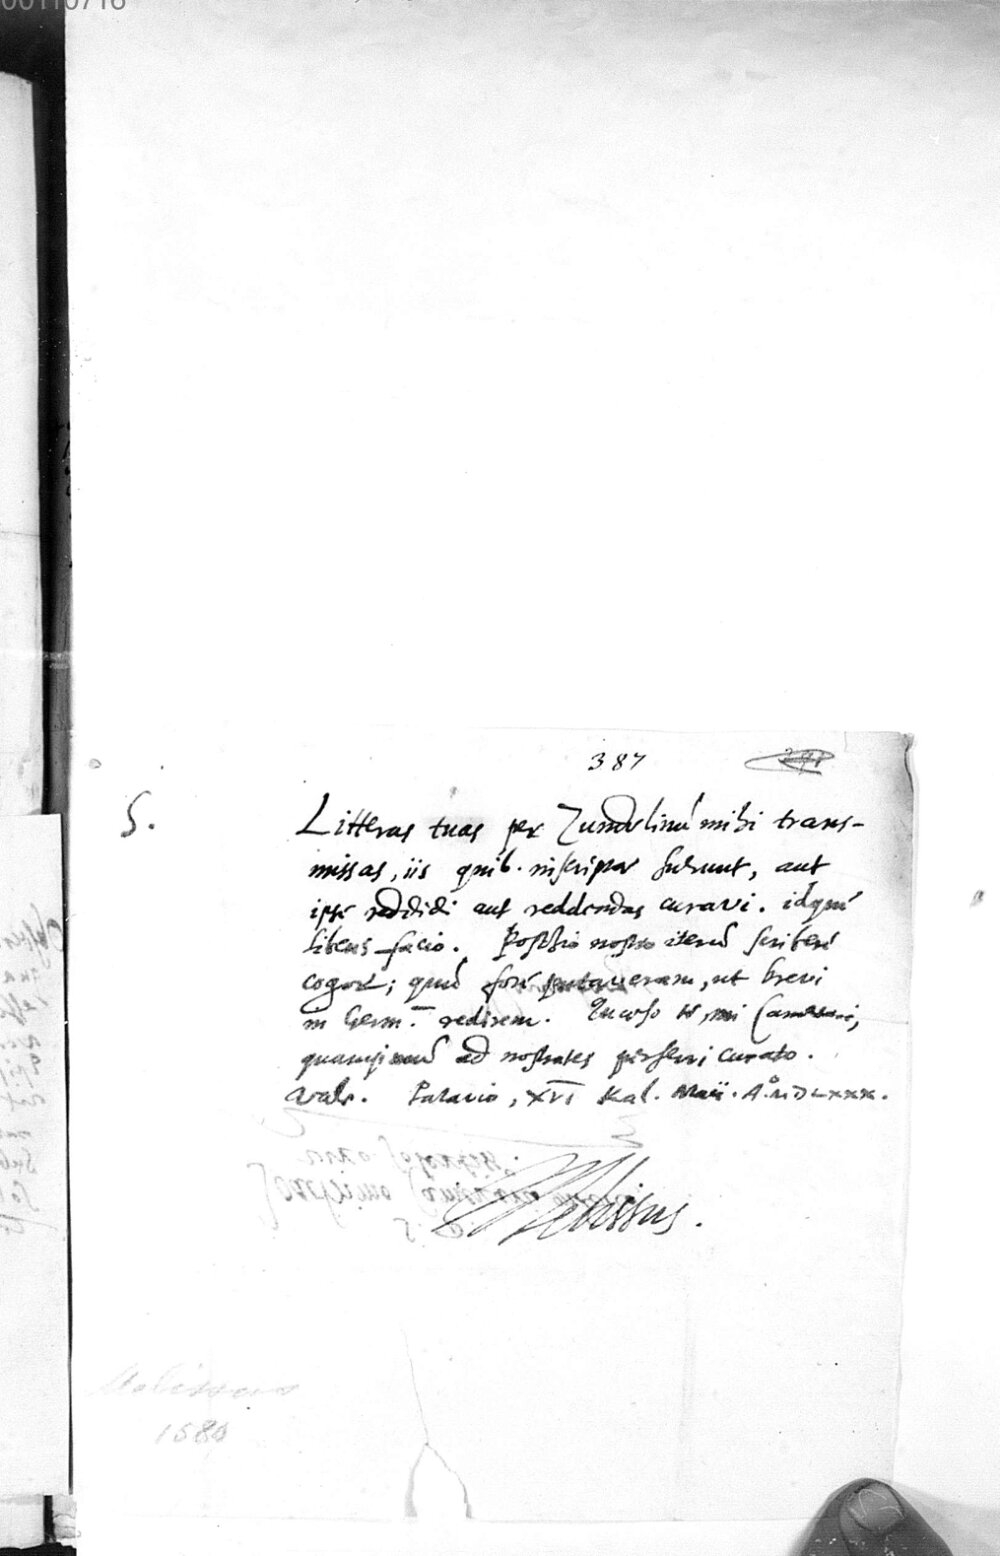 00110716
387
S.
Litteras tuas per Zunderlinū mihi trans-
missas, iis quib. inscriptae fuerunt, aut
ipsé reddidi aut reddendas curavi. idqué
libens facio. Posthio nostro iterū scriberé
cogor; quū foré putaveram, ut brevi
in Germ. redirem. Inclusas mi Camerari,
ad nostrates perferri curato.
Vale. Patavio, XVI Kal. Maii. A.º MDLXXX.
Melissus.
Melissus
1580